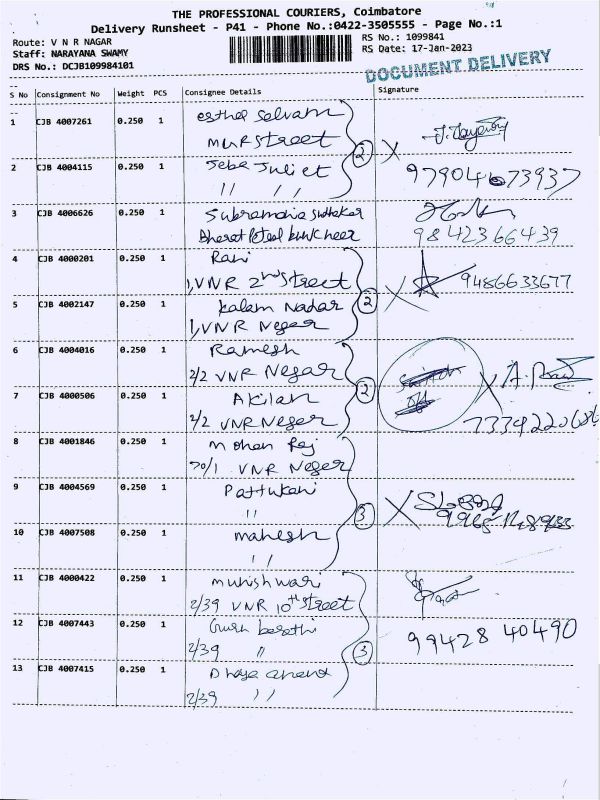 THE PROFESSIONAL COURIERS, Coimbatore
Delivery Runsheet - P41 - Phone No.:0422-3505555 - Page No.:1
Route: V N R NAGAR
RS No.: 1099841
Staff: NARAYANA SWAMY
RS Date: 17-Jan-2023
DRS No.: DCJB109984101
DOCUMENT DELIVERY
S No Consignment No Weight PCS Consignee Details Signature
1 CJB 4007261 0.250 1 esther Selvam
MUR Street
2 CJB 4004115 0.250 1 Jeba Juliet
" "
2
3 CJB 4006626 0.250 1 Subramania
Bharat Petrol
9842366439
4 CJB 4000201 0.250 1 Rani
1, VNR 2nd Street
9486633677
5 CJB 4002147 0.250 1 Kalam Nadar
1, VNR Neger
2
6 CJB 4004016 0.250 1 Ramesh
2/2 VNR Negar
7 CJB 4000506 0.250 1 Akilan
2/2 VNR Neger
2
8 CJB 4001846 0.250 1 Mohan Raj
70/1 VNR Neger
9 CJB 4004569 0.250 1 Pattukani
"
3
10 CJB 4007508 0.250 1 mahesh
" 
11 CJB 4000422 0.250 1 munishwari
2/39 VNR 10th Street
12 CJB 4007443 0.250 1
2/39 "
99428 40490
3
13 CJB 4007415 0.250 1 anand
2/39 "